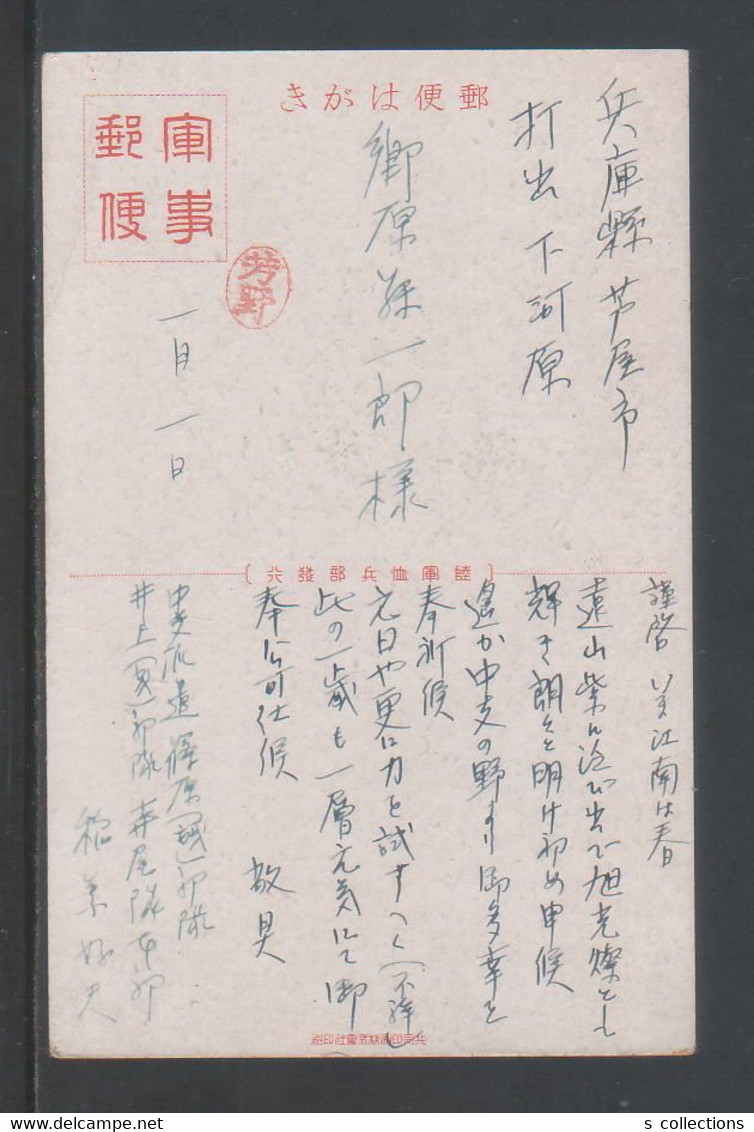 郵便はがき
軍事
郵便
芳野
兵庫縣芦屋市
打出下河原
郷原 一郎様
一月一日
〔陸軍恤兵部發行〕
謹啓 いま江南は春
遠山紫に 出で旭光燦とし
輝き朗々と明け初め申候
遥か中支の野より御多幸を
奉祈候
元日や更に力を試すべく（不 ）
此の一歳も一層元気にて御
奉公可仕候 敬具
中支派遣篠原（誠一）部隊
井上（ 一）部隊 尾隊本部
稲 好夫
共同印刷株式會社印刷
s collections